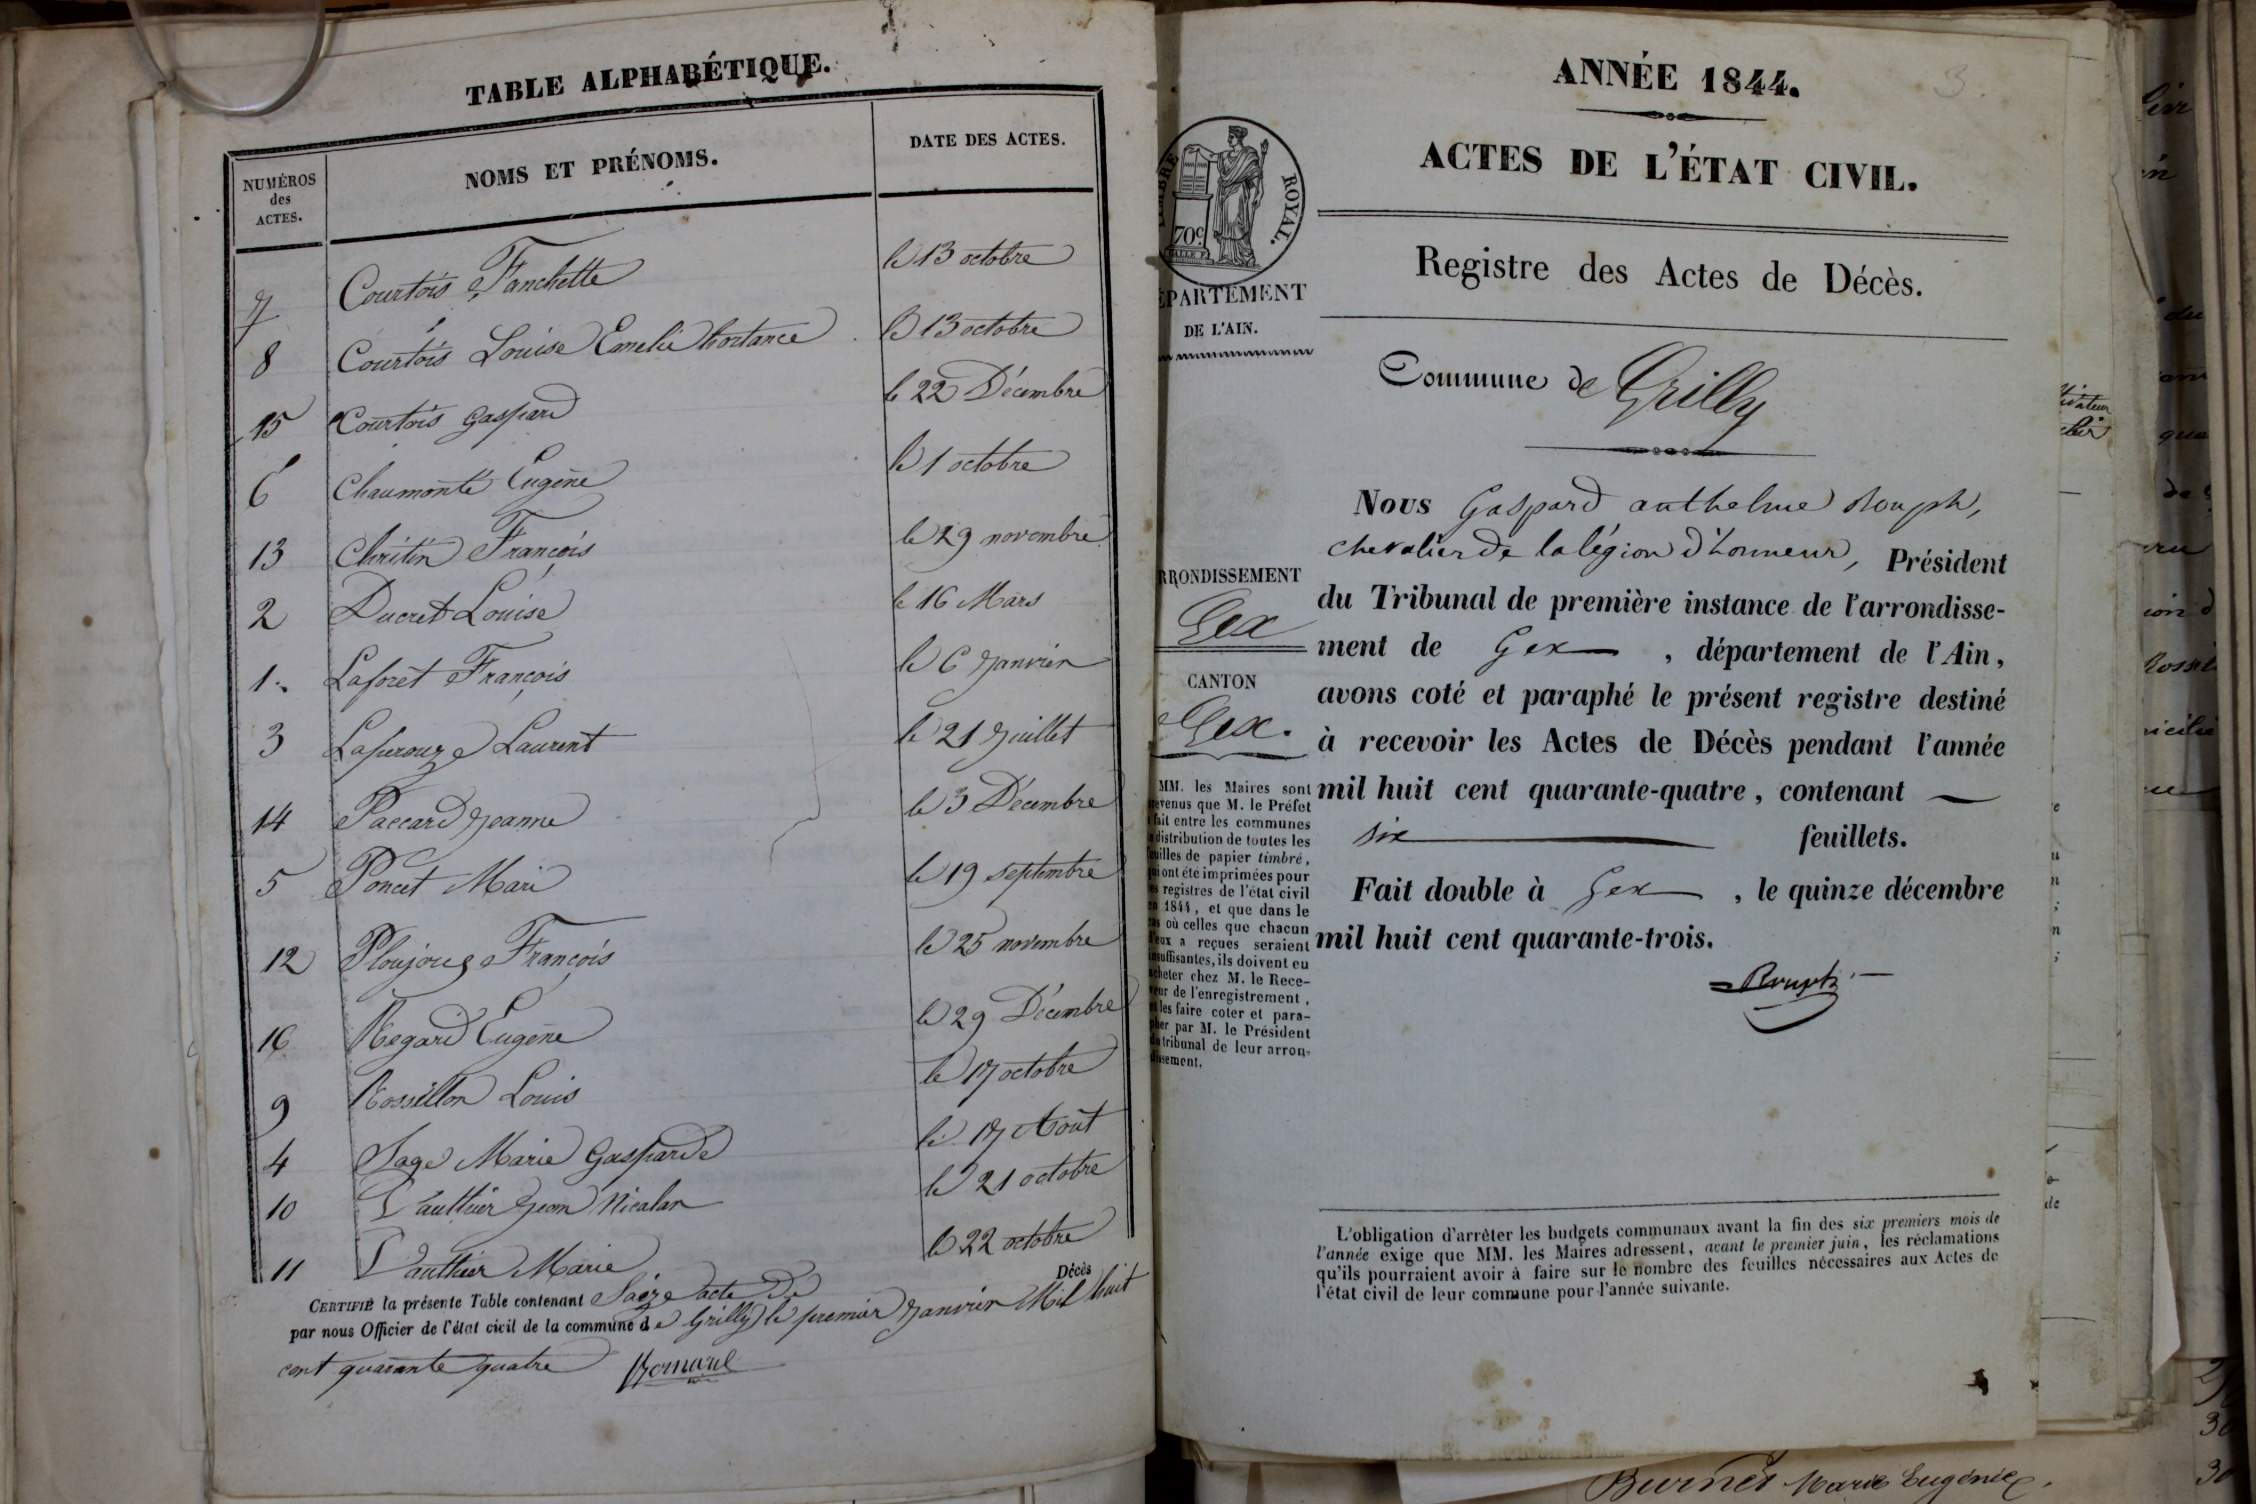 TABLE ALPHABÉTIQUE.
NUMÉROS
des
ACTES.
NOMS ET PRÉNOMS.
DATE DES ACTES.
7 Courtois Fanchette le 13 octobre
8 Courtois Louise Emelie hortance le 13 octobre
15 Courtois Gaspard le 22 Décembre
6 Chaumonté Eugène le 1 octobre
13 Christin François le 29 novembre
2 Ducret Louise le 16 Mars
1 Laforet François le 6 Janvier
3 Laperouze Laurent le 21 Juillet
14 Paccard Jeanne le 3 Décembre
5 Poncet Marie le 19 septembre
12 Ploujoux François le 25 novembre
16 Regard Eugène le 29 Décembre
9 Rossillon Louis le 17 octobre
4 Sage Marie Gasparde le 17 Aout
10 Vauthier Jean Nicolas le 21 octobre
11 Vauthier Marie le 22 octobre
CERTIFIÉ la présente Table contenant Saize acte De Décès
par nous Officier de l'état civil de la commune de Grilly le premier Janvier Mil huit
cent quarante quatre
ANNÉE 1844.
3.
ACTES DE L'ÉTAT CIVIL.
TIMBRE ROYAL.
70c
DÉPARTEMENT
DE L'AIN.
Registre des Actes de Décès.
Commune de Grilly
Nous Gaspard anthelme Rouph,
chevalier de la légion d'honneur, Président
du Tribunal de première instance de l'arrondisse-
ment de Gex, département de l'Ain,
avons coté et paraphé le présent registre destiné
à recevoir les Actes de Décès pendant l'année
mil huit cent quarante-quatre, contenant
six feuillets.
Fait double à Gex, le quinze décembre
mil huit cent quarante-trois.
Rouph
ARRONDISSEMENT
Gex
CANTON
Gex.
MM. les Maires sont
prévenus que M. le Préfet
a fait entre les communes
la distribution de toutes les
feuilles de papier timbré,
qui ont été imprimées pour
les registres de l'état civil
en 1844, et que dans le
cas où celles que chacun
d'eux a reçues seraient
insuffisantes, ils doivent en
acheter chez M. le Rece-
veur de l'enregistrement,
et les faire coter et para-
pher par M. le Président
du tribunal de leur arron-
dissement.
L'obligation d'arrêter les budgets communaux avant la fin des six premiers mois de
l'année exige que MM. les Maires adressent, avant le premier juin, les réclamations
qu'ils pourraient avoir à faire sur le nombre des feuilles nécessaires aux Actes de
l'état civil de leur commune pour l'année suivante.
Burnet Marie Eugénie.